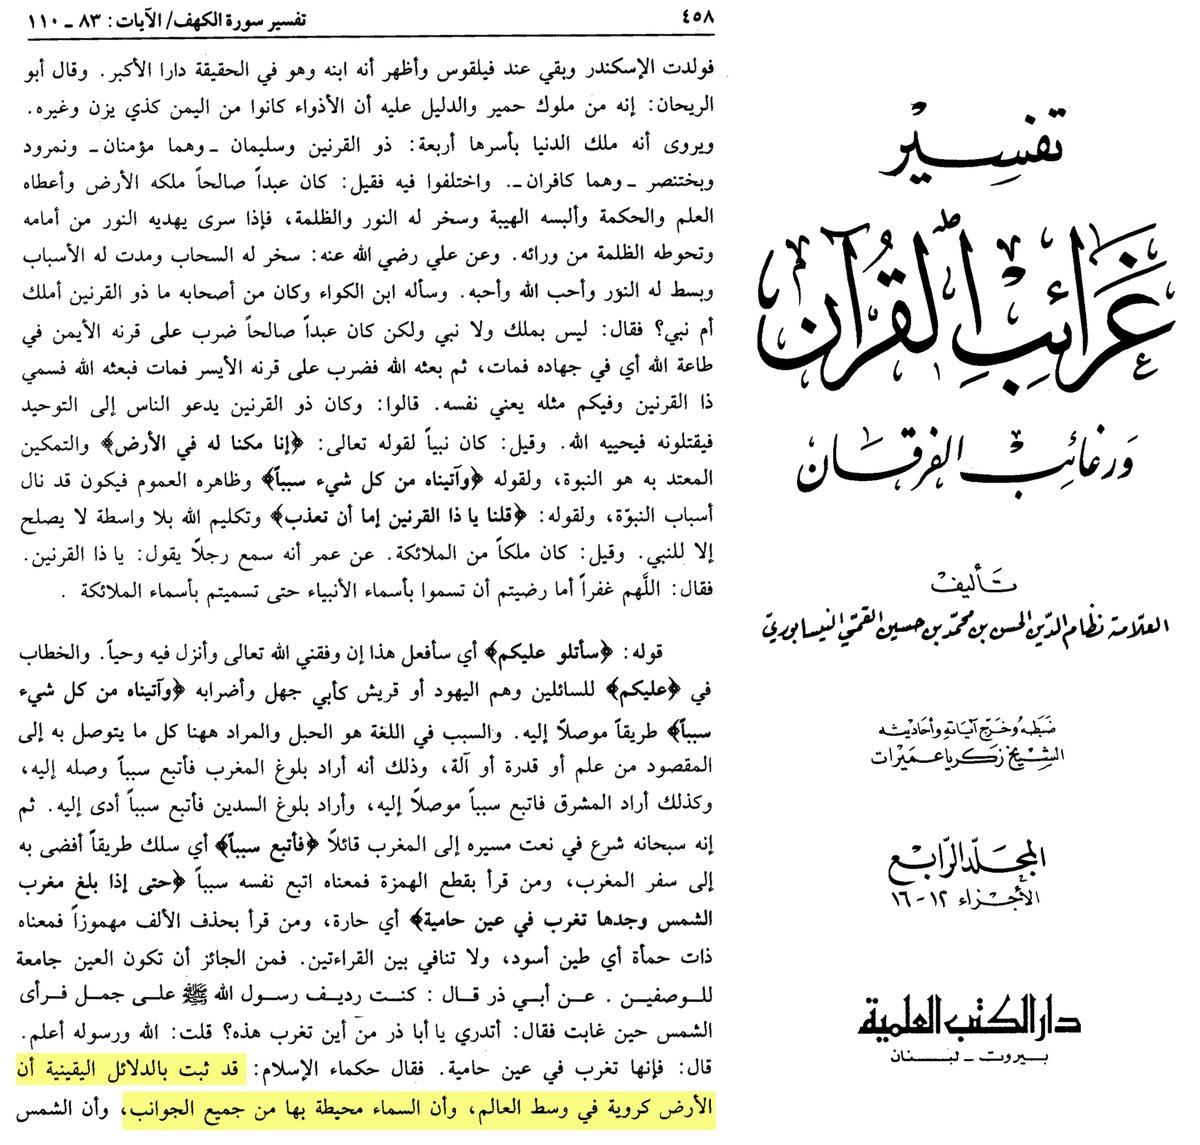 ٤٥٨
تفسير سورة الكهف/ الآيات: ٨٣ ـ ١١٠
فولدت الإسكندر وبقي عند فيلقوس وأظهر أنه ابنه وهو في الحقيقة دارا الأكبر. وقال أبو
الريحان: إنه من ملوك حمير والدليل عليه أن الأذواء كانوا من اليمن كذي يزن وغيره.
ويروى أنه ملك الدنيا بأسرها أربعة: ذو القرنين وسليمان ـ وهما مؤمنان ـ ونمرود
وبختنصر ـ وهما كافران ـ. واختلفوا فيه فقيل: كان عبداً صالحاً ملكه الأرض وأعطاه
العلم والحكمة وألبسه الهيبة وسخر له النور والظلمة، فإذا سرى يهديه النور من أمامه
وتحوطه الظلمة من ورائه. وعن علي رضي الله عنه: سخر له السحاب ومدت له الأسباب
وبسط له النور وأحب الله وأحبه. وسأله ابن الكواء وكان من أصحابه ما ذو القرنين أملك
أم نبي؟ فقال: ليس بملك ولا نبي ولكن كان عبداً صالحاً ضرب على قرنه الأيمن في
طاعة الله أي في جهاده فمات، ثم بعثه الله فضرب على قرنه الأيسر فمات فبعثه الله فسمي
ذا القرنين وفيكم مثله يعني نفسه. قالوا: وكان ذو القرنين يدعو الناس إلى التوحيد
فيقتلونه فيحييه الله. وقيل: كان نبياً لقوله تعالى: ﴿إنا مكنا له في الأرض﴾ والتمكين
المعتد به هو النبوة، ولقوله ﴿وآتيناه من كل شيء سبباً﴾ وظاهره العموم فيكون قد نال
أسباب النبوّة، ولقوله: ﴿قلنا يا ذا القرنين إما أن تعذب﴾ وتكليم الله بلا واسطة لا يصلح
إلا للنبي. وقيل: كان ملكاً من الملائكة. عن عمر أنه سمع رجلاً يقول: يا ذا القرنين.
فقال: اللَّهم غفراً أما رضيتم أن تسموا بأسماء الأنبياء حتى تسميتم بأسماء الملائكة .
قوله: ﴿سأتلو عليكم﴾ أي سأفعل هذا إن وفقني الله تعالى وأنزل فيه وحياً. والخطاب
في ﴿عليكم﴾ للسائلين وهم اليهود أو قريش كأبي جهل وأضرابه ﴿وآتيناه من كل شيء
سبباً﴾ طريقاً موصلاً إليه. والسبب في اللغة هو الحبل والمراد ههنا كل ما يتوصل به إلى
المقصود من علم أو قدرة أو آلة، وذلك أنه أراد بلوغ المغرب فأتبع سبباً وصله إليه،
وكذلك أراد المشرق فاتبع سبباً موصلاً إليه، وأراد بلوغ السدين فأتبع سبباً أدى إليه. ثم
إنه سبحانه شرع في نعت مسيره إلى المغرب قائلاً ﴿فأتبع سبباً﴾ أي سلك طريقاً أفضى به
إلى سفر المغرب، ومن قرأ بقطع الهمزة فمعناه اتبع نفسه سبباً ﴿حتى إذا بلغ مغرب
الشمس وجدها تغرب في عين حامية﴾ أي حارة، ومن قرأ بحذف الألف مهموزاً فمعناه
ذات حمأة أي طين أسود، ولا تنافي بين القراءتين. فمن الجائز أن تكون العين جامعة
للوصفين . عن أبي ذر قال : كنت رديف رسول الله ﷺ على جمل فرأى
الشمس حين غابت فقال: أتدري يا أبا ذر من أين تغرب هذه؟ قلت: الله ورسوله أعلم.
قال: فإنها تغرب في عين حامية. فقال حكماء الإسلام: قد ثبت بالدلائل اليقينية أن
الأرض كروية في وسط العالم، وأن السماء محيطة بها من جميع الجوانب، وأن الشمس
تفسير
غرائب القرآن
ورغائب الفرقان
تأليف
العلامة نظام الدين الحسن بن محمد بن حسين القمي النيسابوري
ضبطه وخرّج آياته وأحاديثه
الشيخ زكريا عميرات
المجلد الرابع
الأجزاء ١٢ - ١٦
دار الكتب العلمية
بيروت ـ لبنان